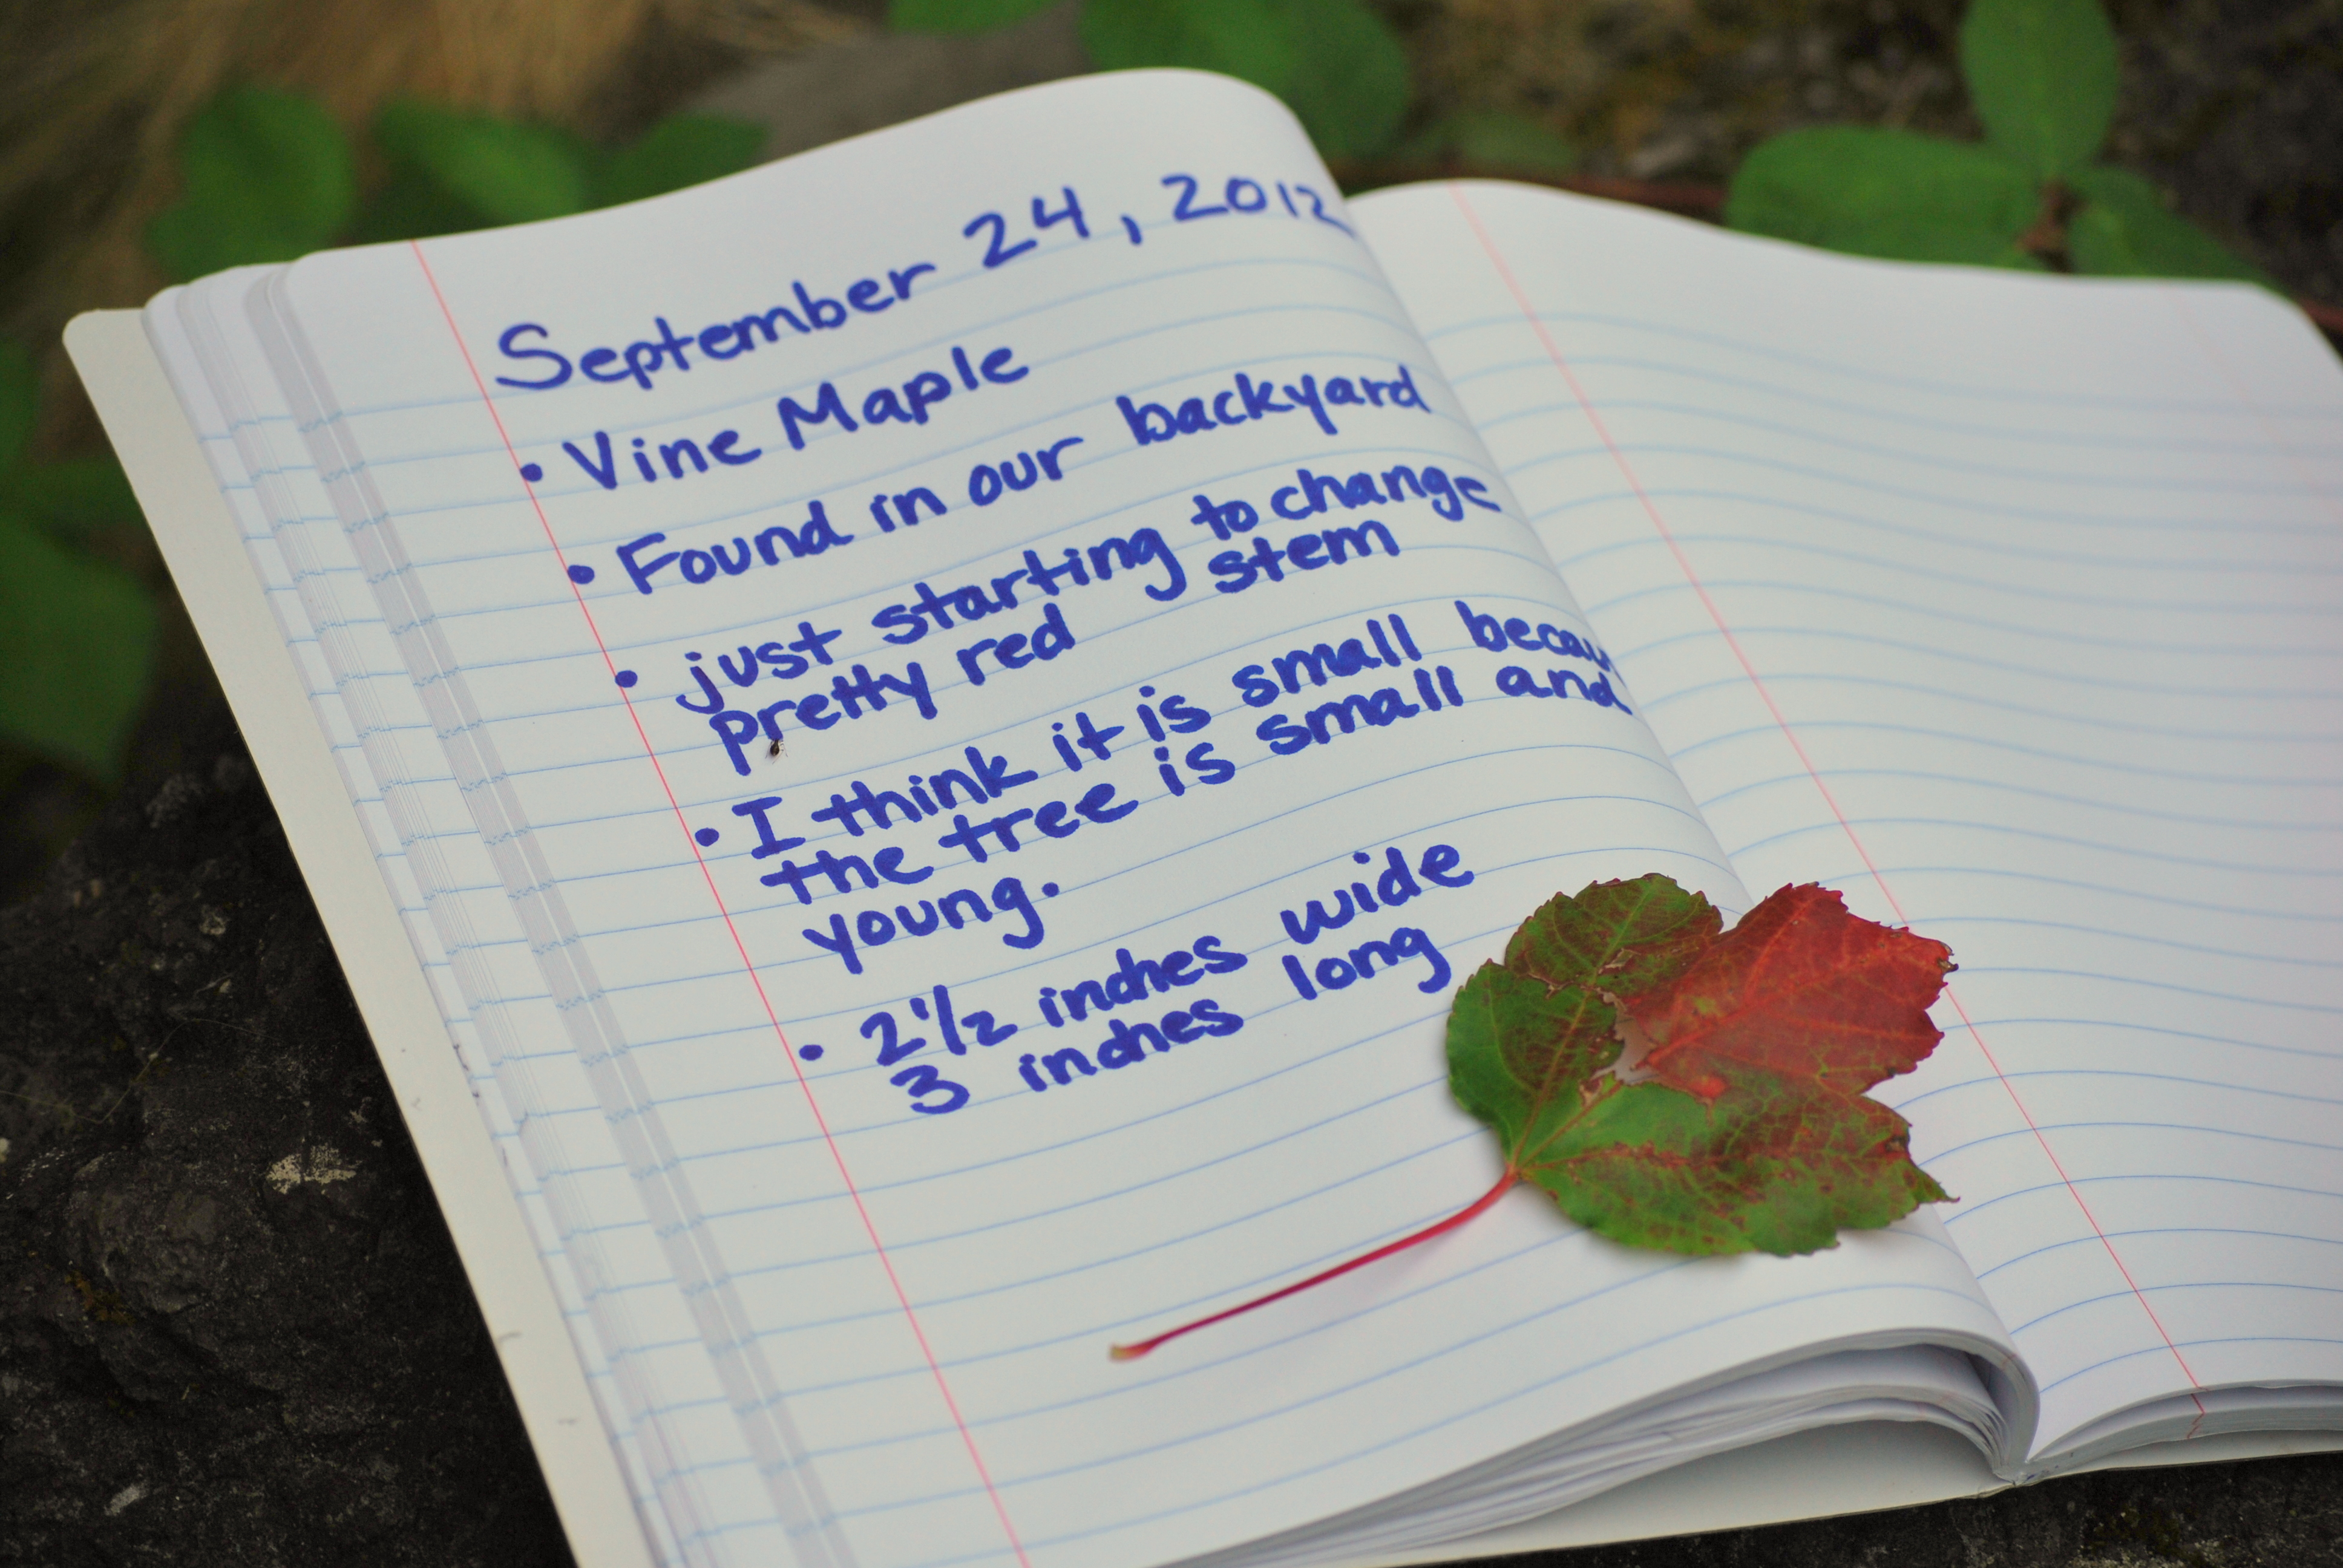 September 24, 2012
• Vine Maple
• Found in our backyard
• just starting to change
pretty red stem
• I think it is small becau
the tree is small and
young.
• 2 1/2 inches wide
3 inches long